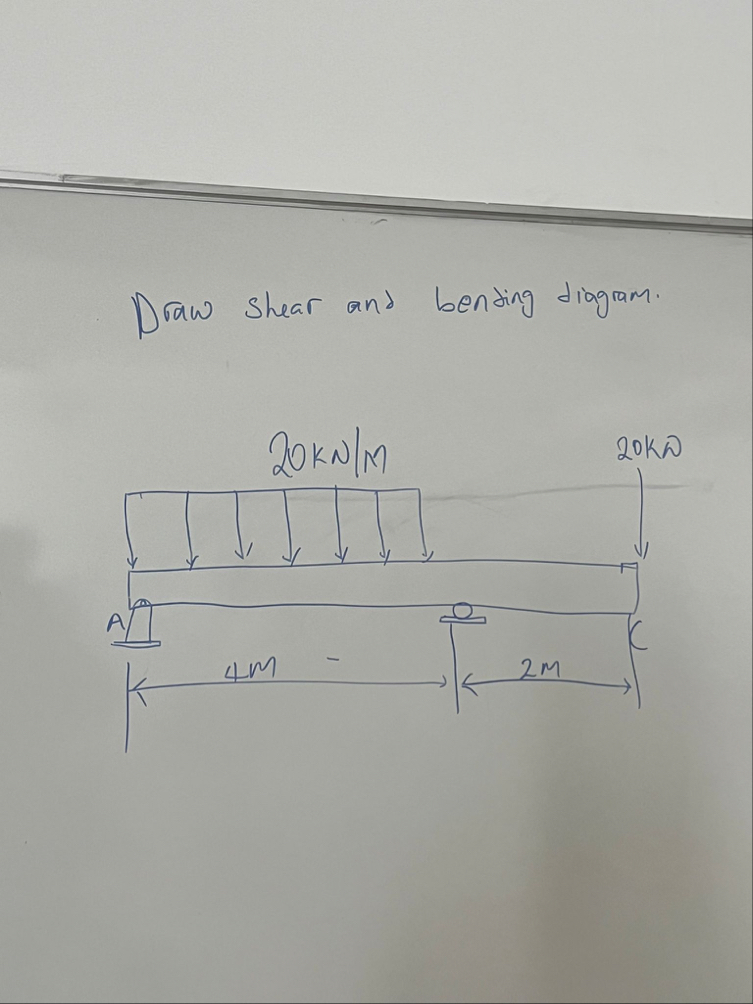 Draw shear and bending diagram.
20KN/M
20KN
A
C
4M
2M